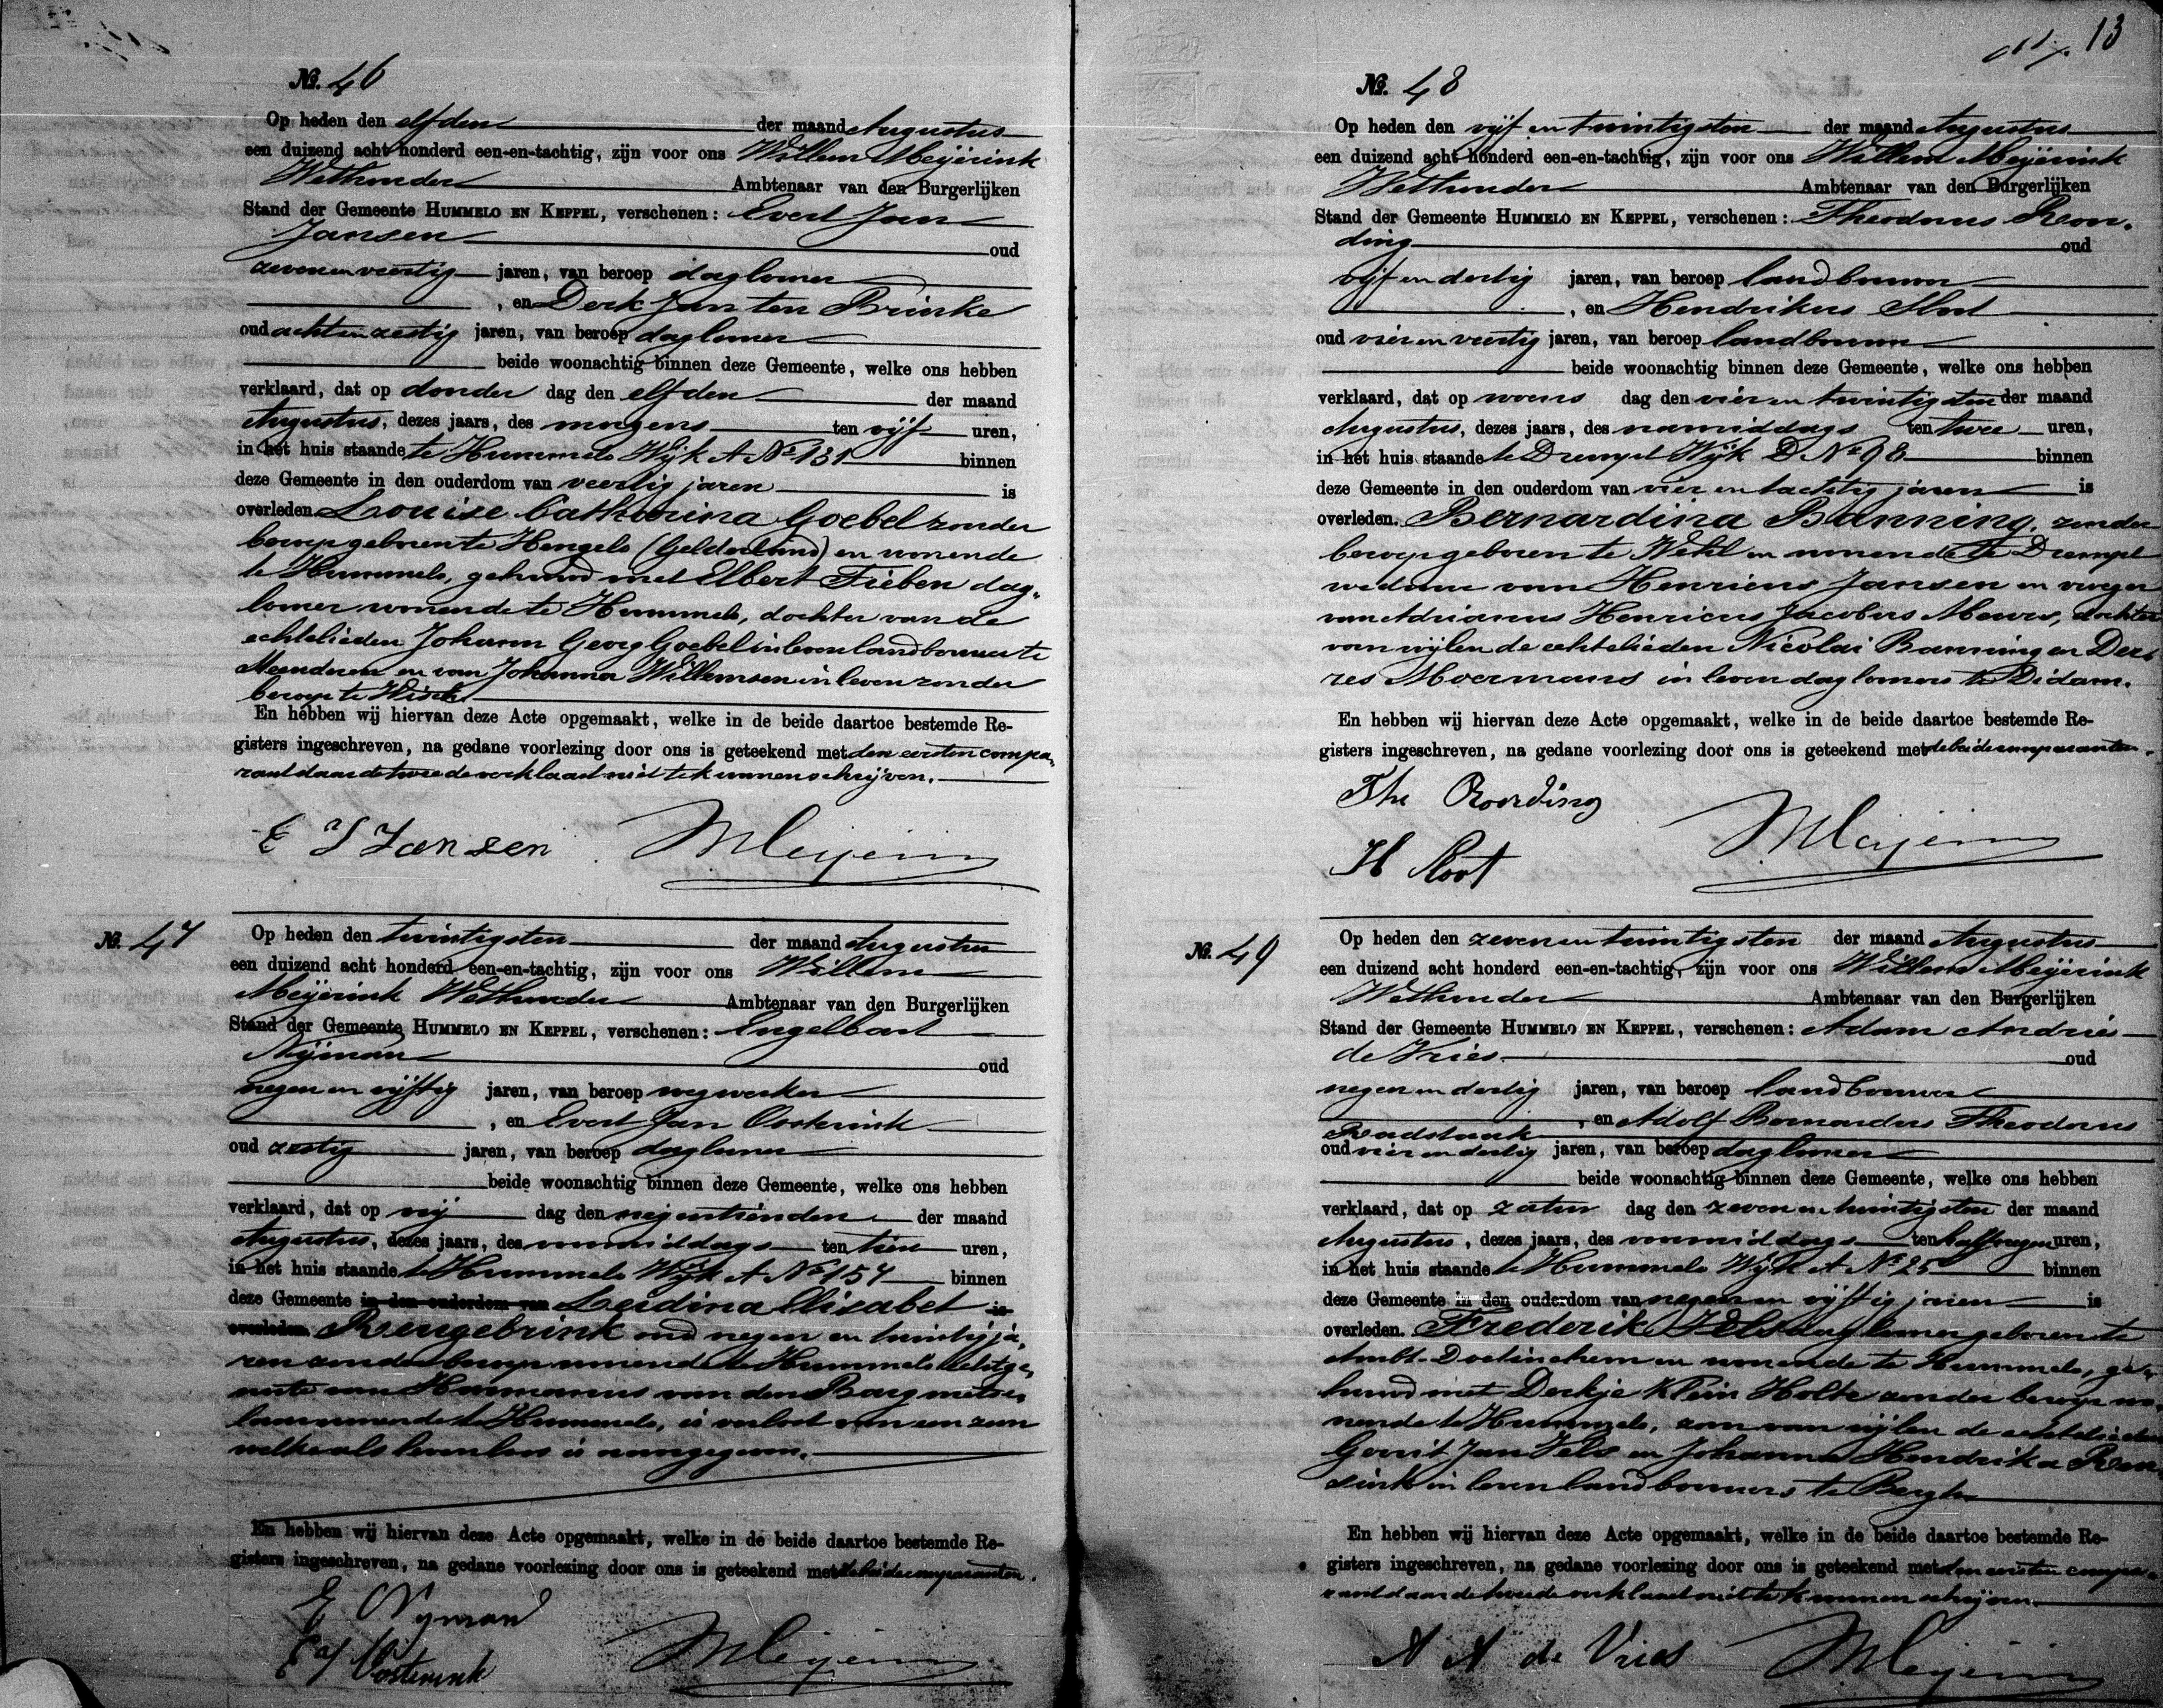 No. 46
Op heden den elfden der maand Augustus
een duizend acht honderd een-en-tachtig, zijn voor ons Willem Meijerink
Wethouder Ambtenaar van den Burgerlijken
Stand der Gemeente HUMMELO EN KEPPEL, verschenen: Evert Jan
Jansen oud
zevenenveertig jaren, van beroep daglooner
, en Derk Jan ten Brinke
oud achtenzestig jaren, van beroep daglooner
beide woonachtig binnen deze Gemeente, welke ons hebben
verklaard, dat op donder dag den elfden der maand
Augustus, dezes jaars, des morgens ten vijf uren,
in het huis staande te Hummelo Wijk A No 131 binnen
deze Gemeente in den ouderdom van veertig jaren is
overleden Louise Catharina Goebel zonder
beroep geboren te Hengelo (Gelderland) en wonende
te Hummelo, gehuwd met Elbert Fieben dag-
looner wonende te Hummelo, dochter van de
echtelieden Johann Georg Goebel in leven landbouwer te
en van Johanna Willemsen in leven zonder
beroep te Wisch
En hebben wij hiervan deze Acte opgemaakt, welke in de beide daartoe bestemde Re-
gisters ingeschreven, na gedane voorlezing door ons is geteekend met den eersten compa-
rant daar de tweede verklaard niet te kunnen schrijven.
E J Jansen WMeijerink
No. 47
Op heden den twintigsten der maand Augustus
een duizend acht honderd een-en-tachtig, zijn voor ons Willem
Meijerink Wethouder Ambtenaar van den Burgerlijken
Stand der Gemeente HUMMELO EN KEPPEL, verschenen: Engelbart
Nijman oud
negen en vijftig jaren, van beroep wegwerker
, en Evert Jan Oosterink
oud zestig jaren, van beroep daglooner
beide woonachtig binnen deze Gemeente, welke ons hebben
verklaard, dat op vrij dag den negentienden der maand
Augustus, dezes jaars, des voormiddags ten tien uren,
in het huis staande te Hummelo Wijk A No 154 binnen
deze Gemeente in den ouderdom van Leidina Elisabet is
overleden Rengebrink oud negen en twintig ja-
ren zonder beroep wonende te Hummelo echtge-
noote van Harmanus van den Barg metse-
laar wonende te Hummelo, is verlost van een zoon
welke als levenloos is aangegeven.
En hebben wij hiervan deze Acte opgemaakt, welke in de beide daartoe bestemde Re-
gisters ingeschreven, na gedane voorlezing door ons is geteekend met de beide comparanten.
E Nijman
E J Oosterink WMeijerink
13
No. 48
Op heden den vijf en twintigsten der maand Augustus
een duizend acht honderd een-en-tachtig, zijn voor ons Willem Meijerink
Wethouder Ambtenaar van den Burgerlijken
Stand der Gemeente HUMMELO EN KEPPEL, verschenen: Theodorus Roor-
ding oud
vijf en dertig jaren, van beroep landbouwer
, en Hendrikus Sloot
oud vier en veertig jaren, van beroep landbouwer
beide woonachtig binnen deze Gemeente, welke ons hebben
verklaard, dat op woens dag den vier en twintigsten der maand
Augustus, dezes jaars, des namiddags ten twee uren,
in het huis staande te Drempt Wijk D No 98 binnen
deze Gemeente in den ouderdom van vier en tachtig jaren is
overleden. Bernardina Banning, zonder
beroep geboren te Wehl en wonende te Drempt
weduwe van Henricus Jansen en vroeger
van Adrianus Henricus Jacobus Meurs, dochter
van wijlen de echtelieden Nicolai Banning en Der-
res Moermans in leven daglooners te Didam.
En hebben wij hiervan deze Acte opgemaakt, welke in de beide daartoe bestemde Re-
gisters ingeschreven, na gedane voorlezing door ons is geteekend met de beide comparanten.
The Roording
H Sloot WMeijerink
No. 49
Op heden den zeven en twintigsten der maand Augustus
een duizend acht honderd een-en-tachtig, zijn voor ons Willem Meijerink
Wethouder Ambtenaar van den Burgerlijken
Stand der Gemeente HUMMELO EN KEPPEL, verschenen: Adam Andries
de Vries oud
negen en dertig jaren, van beroep landbouwer
, en Adolf Bernardus Theodorus
Raadstaak
oud vier en dertig jaren, van beroep daglooner
beide woonachtig binnen deze Gemeente, welke ons hebben
verklaard, dat op zatur dag den zeven en twintigsten der maand
Augustus, dezes jaars, des voormiddags ten half negen uren,
in het huis staande te Hummelo Wijk A No 25 binnen
deze Gemeente in den ouderdom van negen en vijftig jaren is
overleden. Frederik Jels daglooner geboren te
Ambt-Doetinchem en wonende te Hummelo, ge-
huwd met Derkje Klein Holte zonder beroep wo-
nende te Hummelo, zoon van wijlen de echtelieden
Gerrit Jan Jels en Johanna Hendrika Ren-
sink in leven landbouwers te Bergh
En hebben wij hiervan deze Acte opgemaakt, welke in de beide daartoe bestemde Re-
gisters ingeschreven, na gedane voorlezing door ons is geteekend met den eersten compa-
rant daar de tweede verklaard niet te kunnen schrijven.
A A de Vries WMeijerink